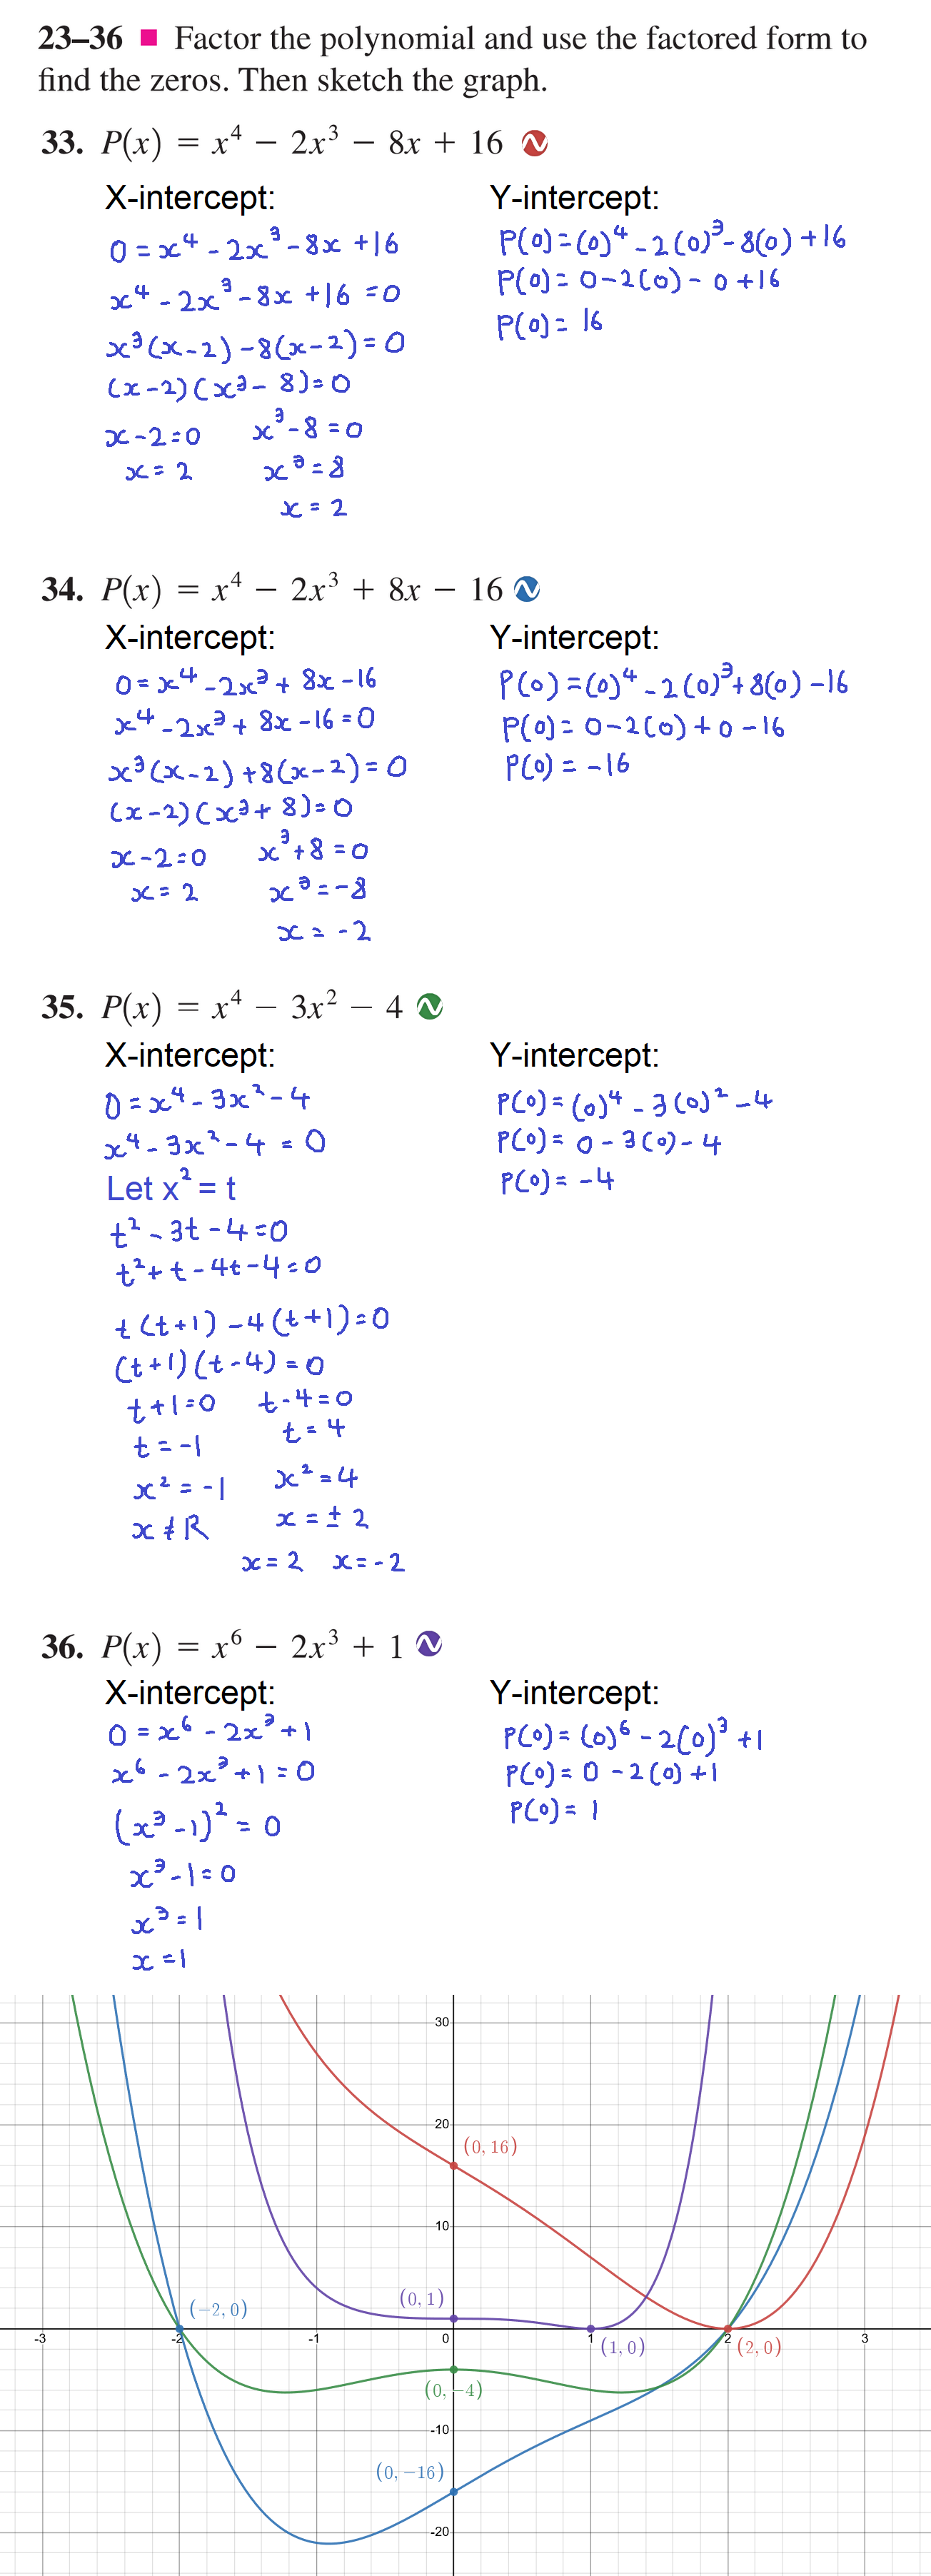 23–36 ■ Factor the polynomial and use the factored form to
find the zeros. Then sketch the graph.
33. P(x) = x⁴ − 2x³ − 8x + 16
X-intercept:
0 = x⁴ - 2x³ - 8x + 16
x⁴ - 2x³ - 8x + 16 = 0
x³(x-2) - 8(x-2) = 0
(x-2)(x³ - 8) = 0
x-2=0 x³-8=0
x = 2 x³ = 8
x = 2
Y-intercept:
P(0) = (0)⁴ - 2(0)³ - 8(0) + 16
P(0) = 0 - 2(0) - 0 + 16
P(0) = 16
34. P(x) = x⁴ − 2x³ + 8x − 16
X-intercept:
0 = x⁴ - 2x³ + 8x - 16
x⁴ - 2x³ + 8x - 16 = 0
x³(x-2) + 8(x-2) = 0
(x-2)(x³ + 8) = 0
x-2=0 x³+8=0
x = 2 x³ = -8
x = -2
Y-intercept:
P(0) = (0)⁴ - 2(0)³ + 8(0) - 16
P(0) = 0 - 2(0) + 0 - 16
P(0) = -16
35. P(x) = x⁴ − 3x² − 4
X-intercept:
0 = x⁴ - 3x² - 4
x⁴ - 3x² - 4 = 0
Let x² = t
t² - 3t - 4 = 0
t² + t - 4t - 4 = 0
t(t+1) - 4(t+1) = 0
(t+1)(t-4) = 0
t+1=0 t-4=0
t = -1 t = 4
x² = -1 x² = 4
x ∉ R x = ± 2
x = 2 x = -2
Y-intercept:
P(0) = (0)⁴ - 3(0)² - 4
P(0) = 0 - 3(0) - 4
P(0) = -4
36. P(x) = x⁶ − 2x³ + 1
X-intercept:
0 = x⁶ - 2x³ + 1
x⁶ - 2x³ + 1 = 0
(x³ - 1)² = 0
x³ - 1 = 0
x³ = 1
x = 1
Y-intercept:
P(0) = (0)⁶ - 2(0)³ + 1
P(0) = 0 - 2(0) + 1
P(0) = 1
30
20
(0, 16)
10
(0, 1)
(−2, 0)
-3 -2 -1 0 1 2 3
(1, 0) (2, 0)
(0, −4)
-10
(0, −16)
-20